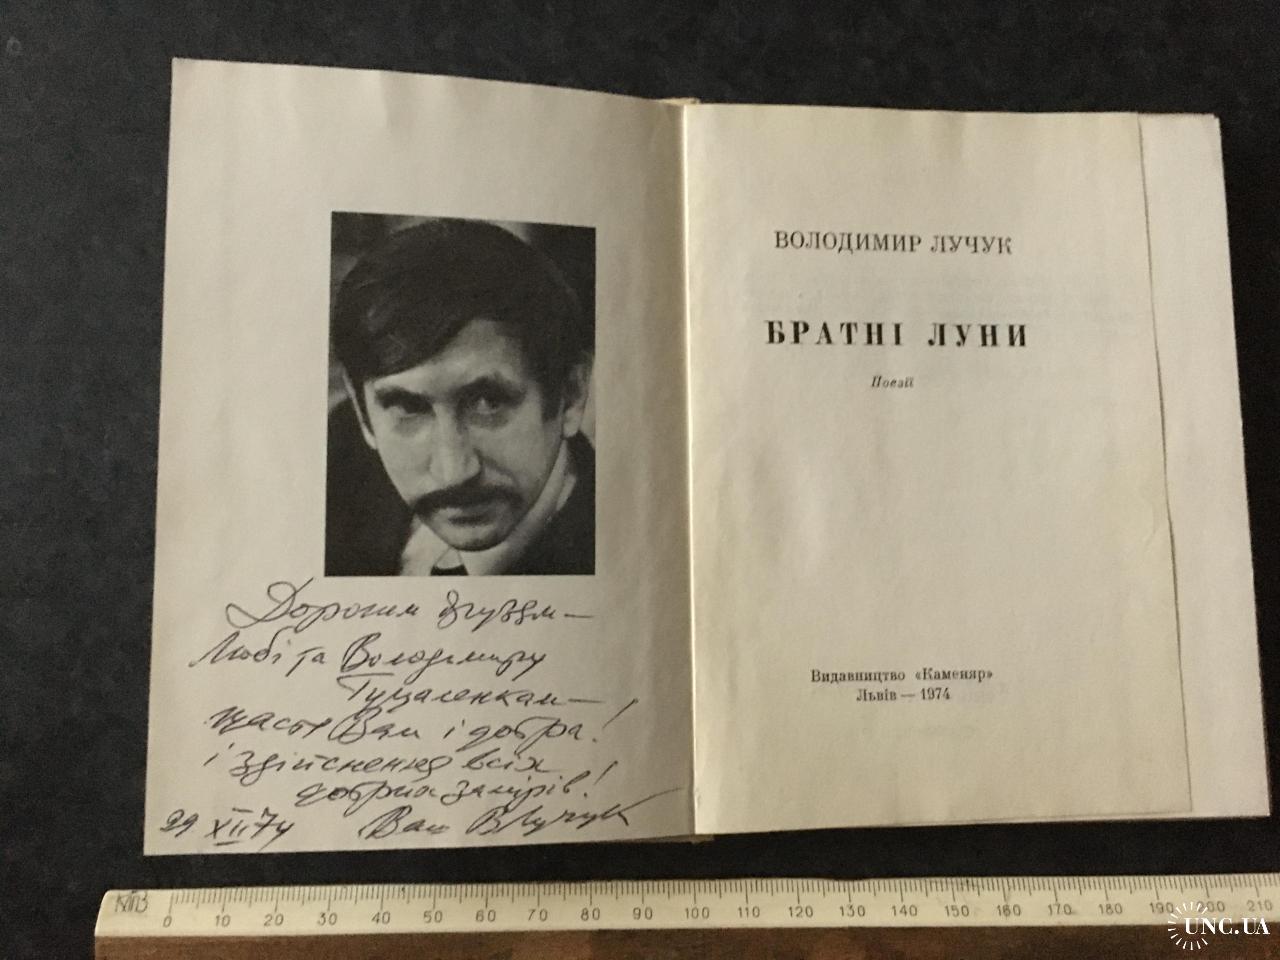 Дорогим друзям —
Любі та Володимиру
Гуцаленкам —
щастя Вам і добра!
і здійснення всіх
добрих замірів!
29 XII 74 Ваш ВЛучук
ВОЛОДИМИР ЛУЧУК
БРАТНІ ЛУНИ
Поезії
Видавництво «Каменяр»
Львів — 1974
0 10 20 30 40 50 60 70 80 90 100 110 120 130 140 150 160 170 180 190 200 210
UNC.UA